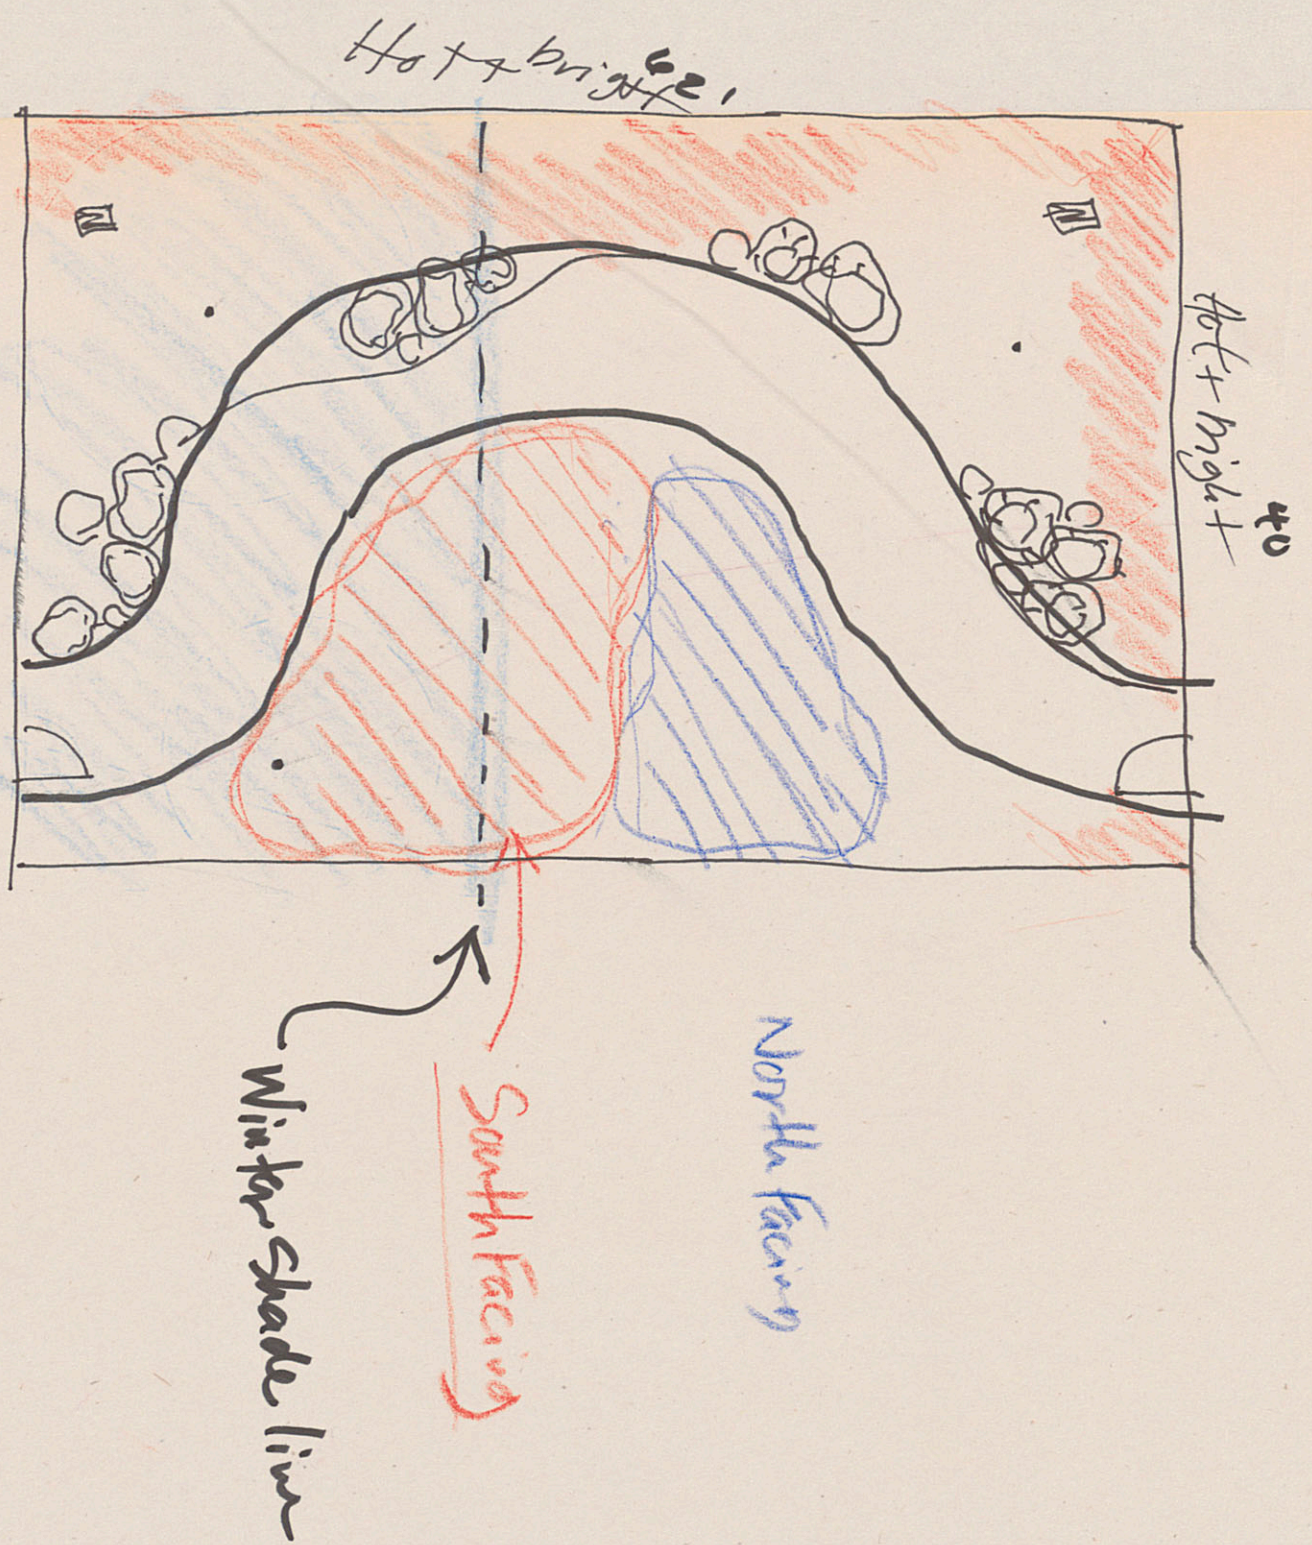 Hot + bright
62'
Hot + bright
40
North Facing
South Facing
Winter Shade line